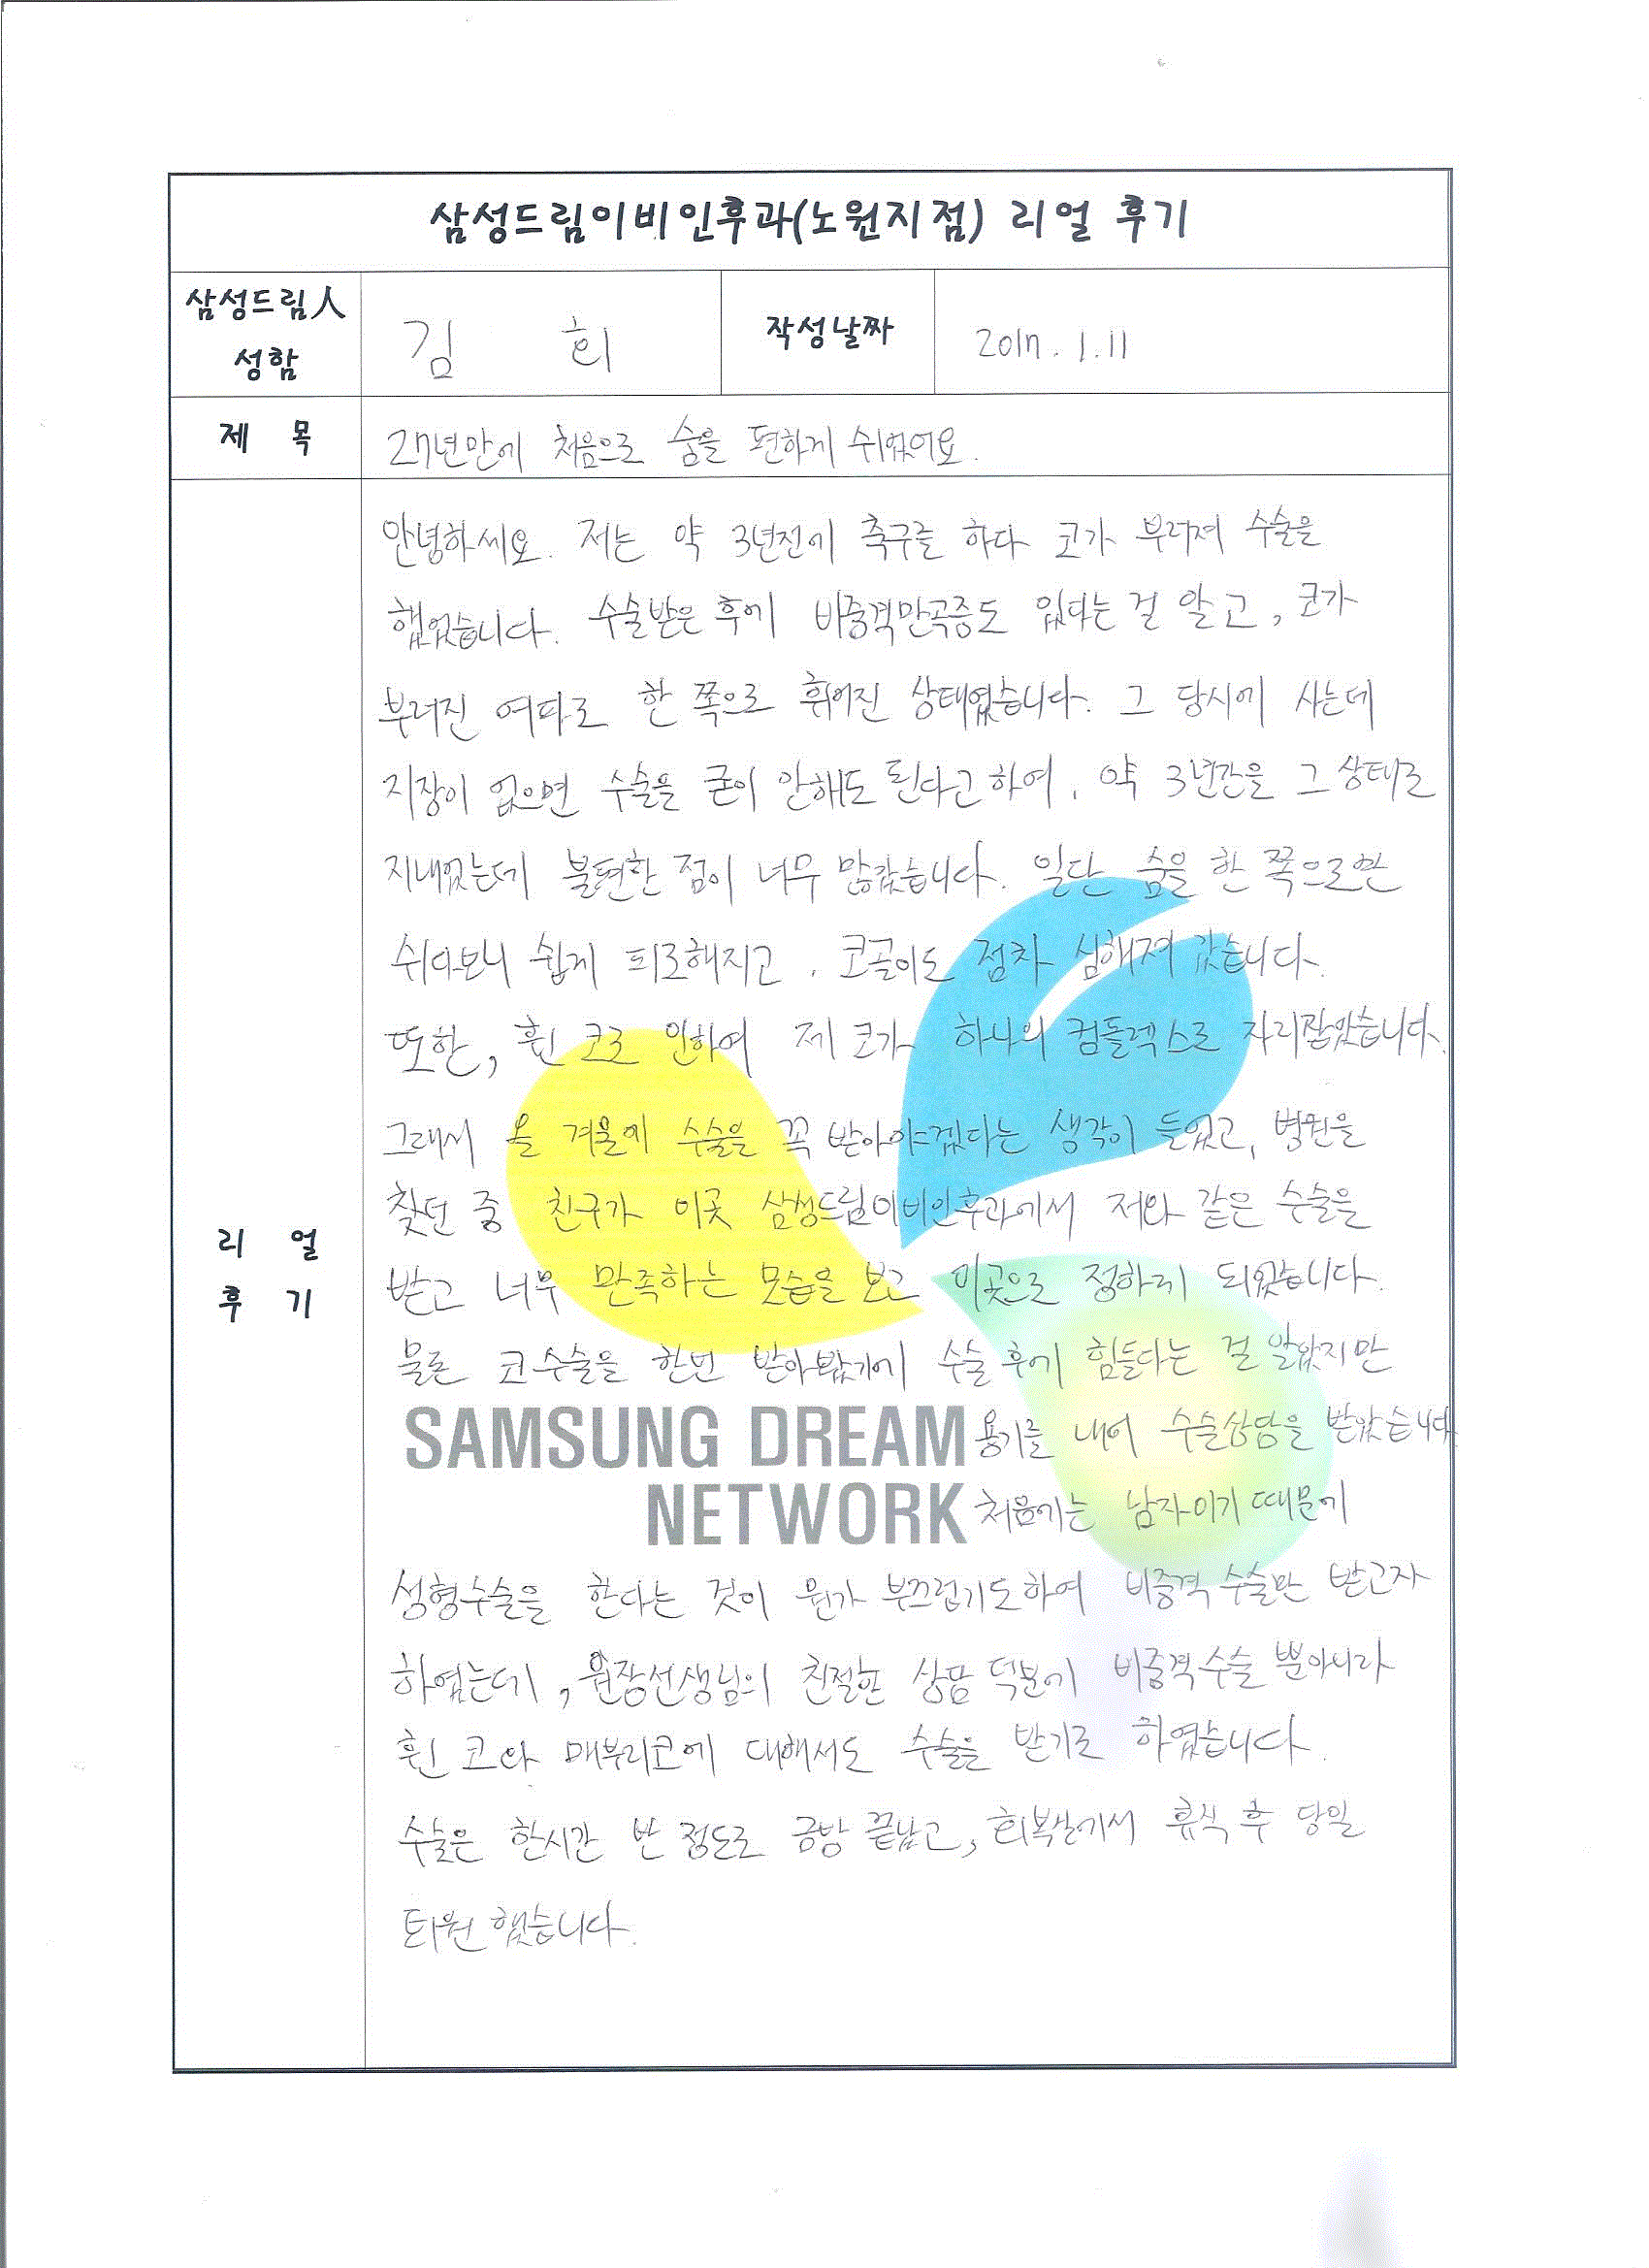 삼성드림이비인후과(노원지점) 리얼 후기
삼성드림人
성함
김 희
작성날짜
2017. 1. 11
제 목
27년만에 처음으로 숨을 편하게 쉬었어요.
리 얼
후 기
안녕하세요. 저는 약 3년전에 축구를 하다 코가 부러져 수술을
했었습니다. 수술받은 후에 비중격만곡증도 있다는 걸 알고, 코가
부러진 여파로 한 쪽으로 휘어진 상태였습니다. 그 당시에 사는데
지장이 없으면 수술을 굳이 안해도 된다고 하여, 약 3년간을 그 상태로
지내었는데 불편한 점이 너무 많았습니다. 일단 숨을 한 쪽으로만
쉬다보니 쉽게 피로해지고, 코골이도 점차 심해져 갔습니다.
또한, 휜 코로 인하여 제 코가 하나의 컴플렉스로 자리잡았습니다.
그래서 올 겨울에 수술을 꼭 받아야겠다는 생각이 들었고, 병원을
찾던 중 친구가 이곳 삼성드림이비인후과에서 저와 같은 수술을
받고 너무 만족하는 모습을 보고 이곳으로 정하게 되었습니다.
물론 코수술을 한번 받아봤기에 수술 후에 힘들다는 걸 알았지만
SAMSUNG DREAM 용기를 내어 수술상담을 받았습니다
NETWORK 처음에는 남자이기 때문에
성형수술을 한다는 것이 뭔가 부끄럽기도하여 비중격 수술만 받고자
하였는데, 원장선생님의 친절한 상담 덕분에 비중격수술 뿐아니라
휜 코와 매부리코에 대해서도 수술을 받기로 하였습니다.
수술은 한시간 반 정도로 금방 끝났고, 회복실에서 휴식 후 당일
퇴원 했습니다.